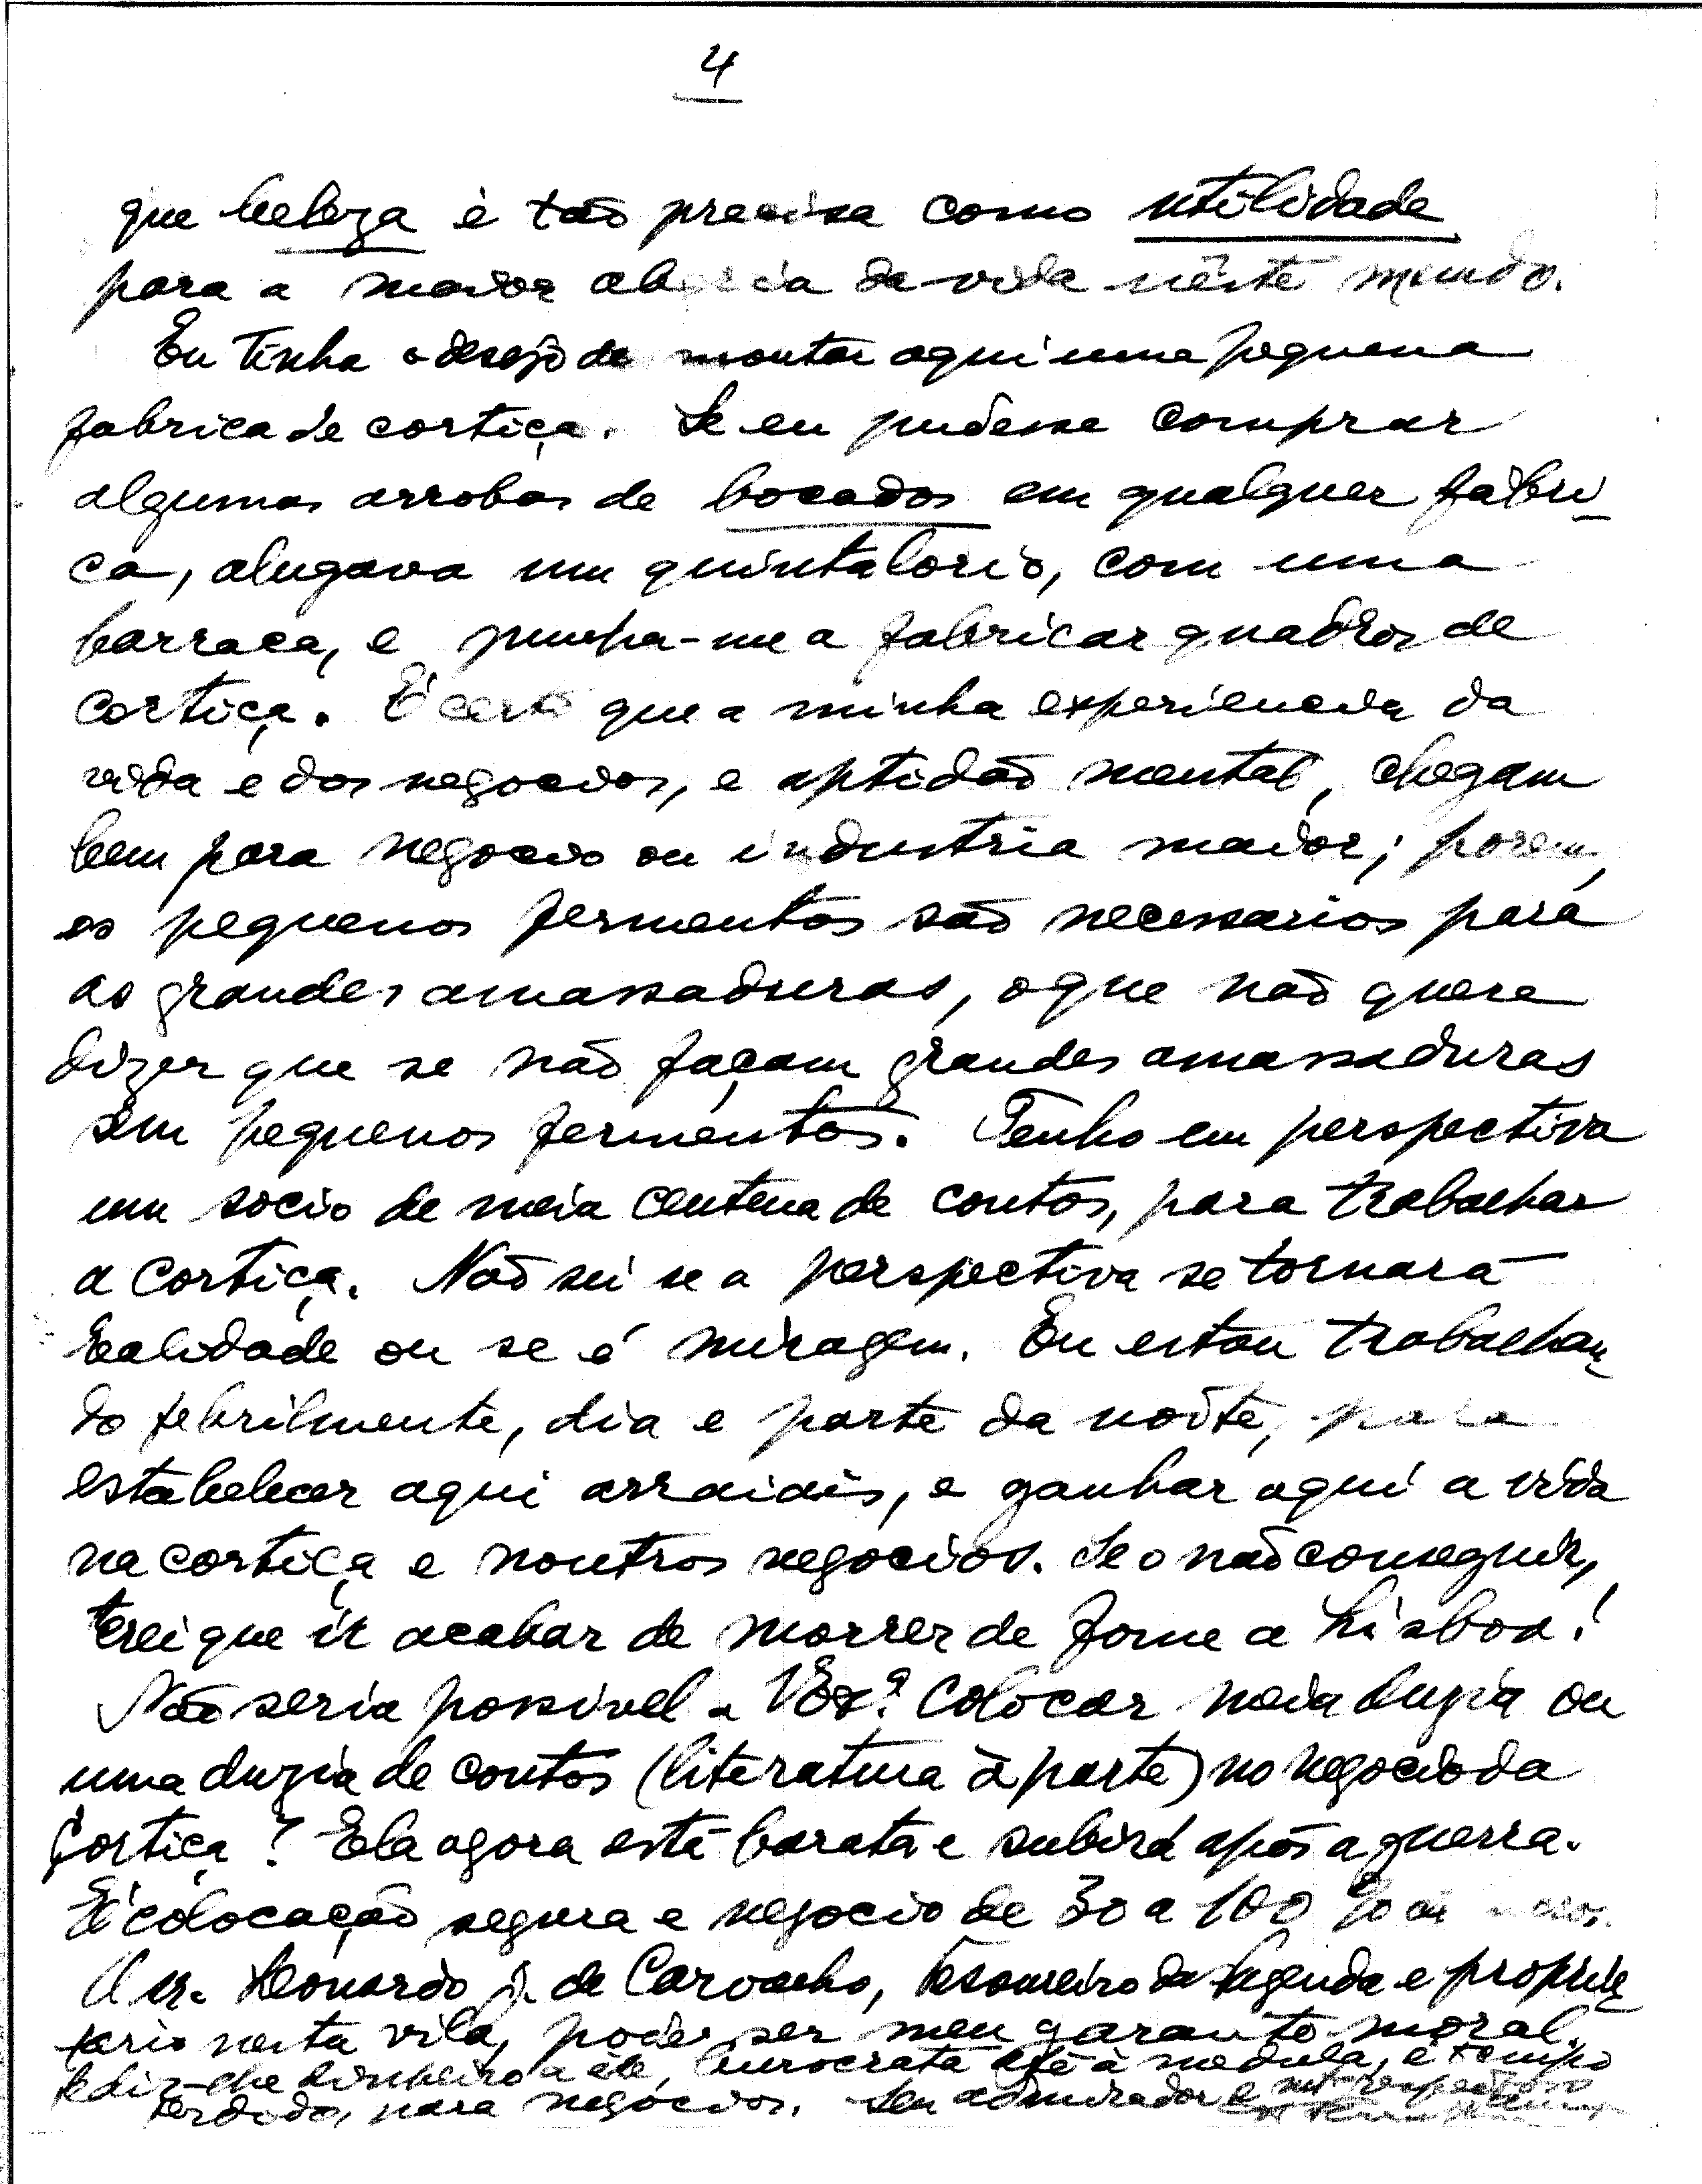 4
que beleza é tão precisa como utilidade
para a maior alegria da vida nêste mundo.
Eu tinha o desejo de montar aqui uma pequena
fabrica de cortiça. Se eu pudesse comprar
algumas arrobas de bocados em qualquer fábri-
ca, alugava um quintalorio, com uma
barraca, e punha-me a fabricar quadros de
cortiça. É certo que a minha experiencia da
vida e dos negocios, e aptidão mental, chegam
bem para negocio ou industria maior; porem,
os pequenos fermentos são necessarios para
as grandes amassaduras, o que não quere
dizer que se não façam grandes amassaduras
sem pequenos fermentos. Tenho em perspectiva
um socio de meia centena de contos, para trabalhar
a cortiça. Não sei se a perspectiva se tornará
realidade ou se é miragem. Eu estou trabalhan-
do febrilmente, dia e parte da noite, para
estabelecer aqui arraiais, e ganhar aqui a vida
na cortiça e noutros negocios. Se o não conseguir,
terei que ir acabar de morrer de fome a Lisboa!
Não seria possivel a V Exª. colocar meia duzia ou
uma duzia de contos (literatura à parte) no negocio da
Cortiça? Ela agora está barata e subirá após a guerra.
É colocação segura e negocio de 30 a 100 %
O sr. Leonardo J. de Carvalho, tesoureiro da Fazenda e proprie-
tario nesta vila, poderá ser meu garante moral.
Pedir-lhe dinheiro a êle, burocrata até à medula, é tempo
perdido, para negocios. Seu admirador e mt.º respeitoso